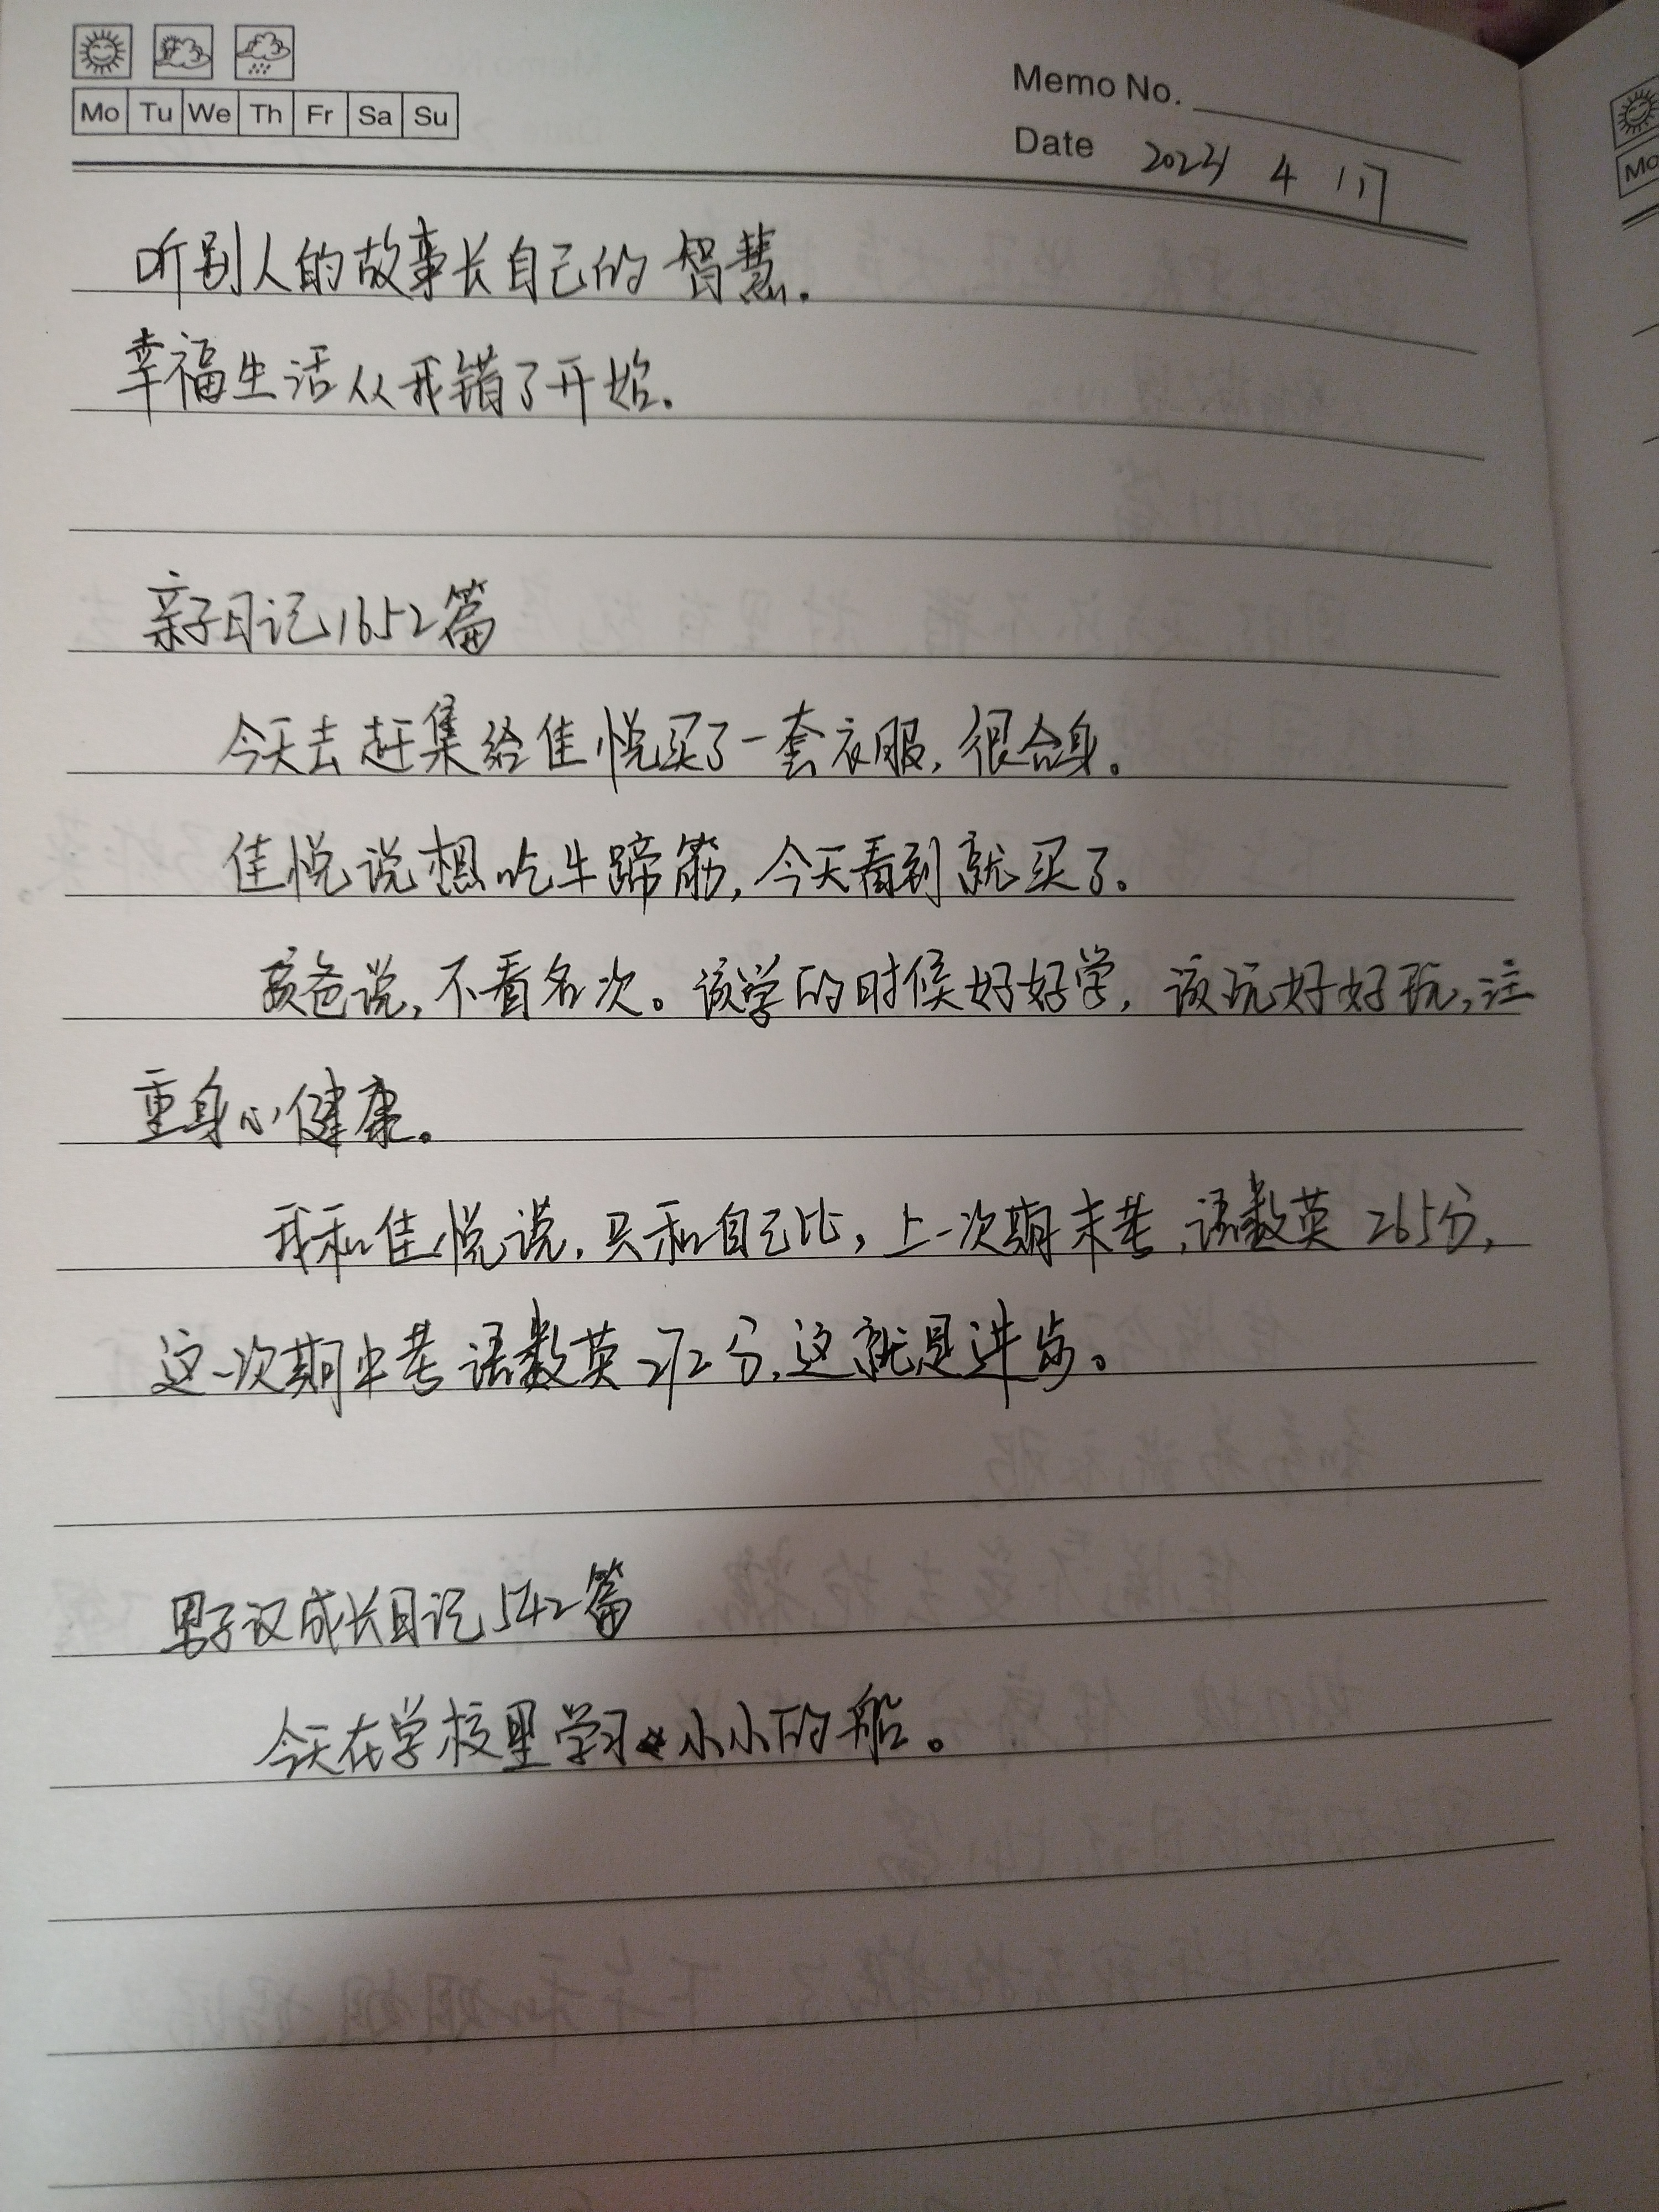 Mo Tu We Th Fr Sa Su
Memo No.
Date 4
听别人的故事长自己的智慧.
幸福生活从我错了开始.
亲子日记1652篇
今天去赶集给佳悦买了一套衣服,很合身。
佳悦说想吃牛蹄筋,今天看到就买了。
孩爸说,不看名次。该学的时候好好学,该玩好好玩,注
重身心健康。
我和佳悦说,只和自己比,上一次期末考,语数英265分,
这一次期中考语数英272分,这就是进步。
男子汉成长日记542篇
今天在学校里学习小小的船。